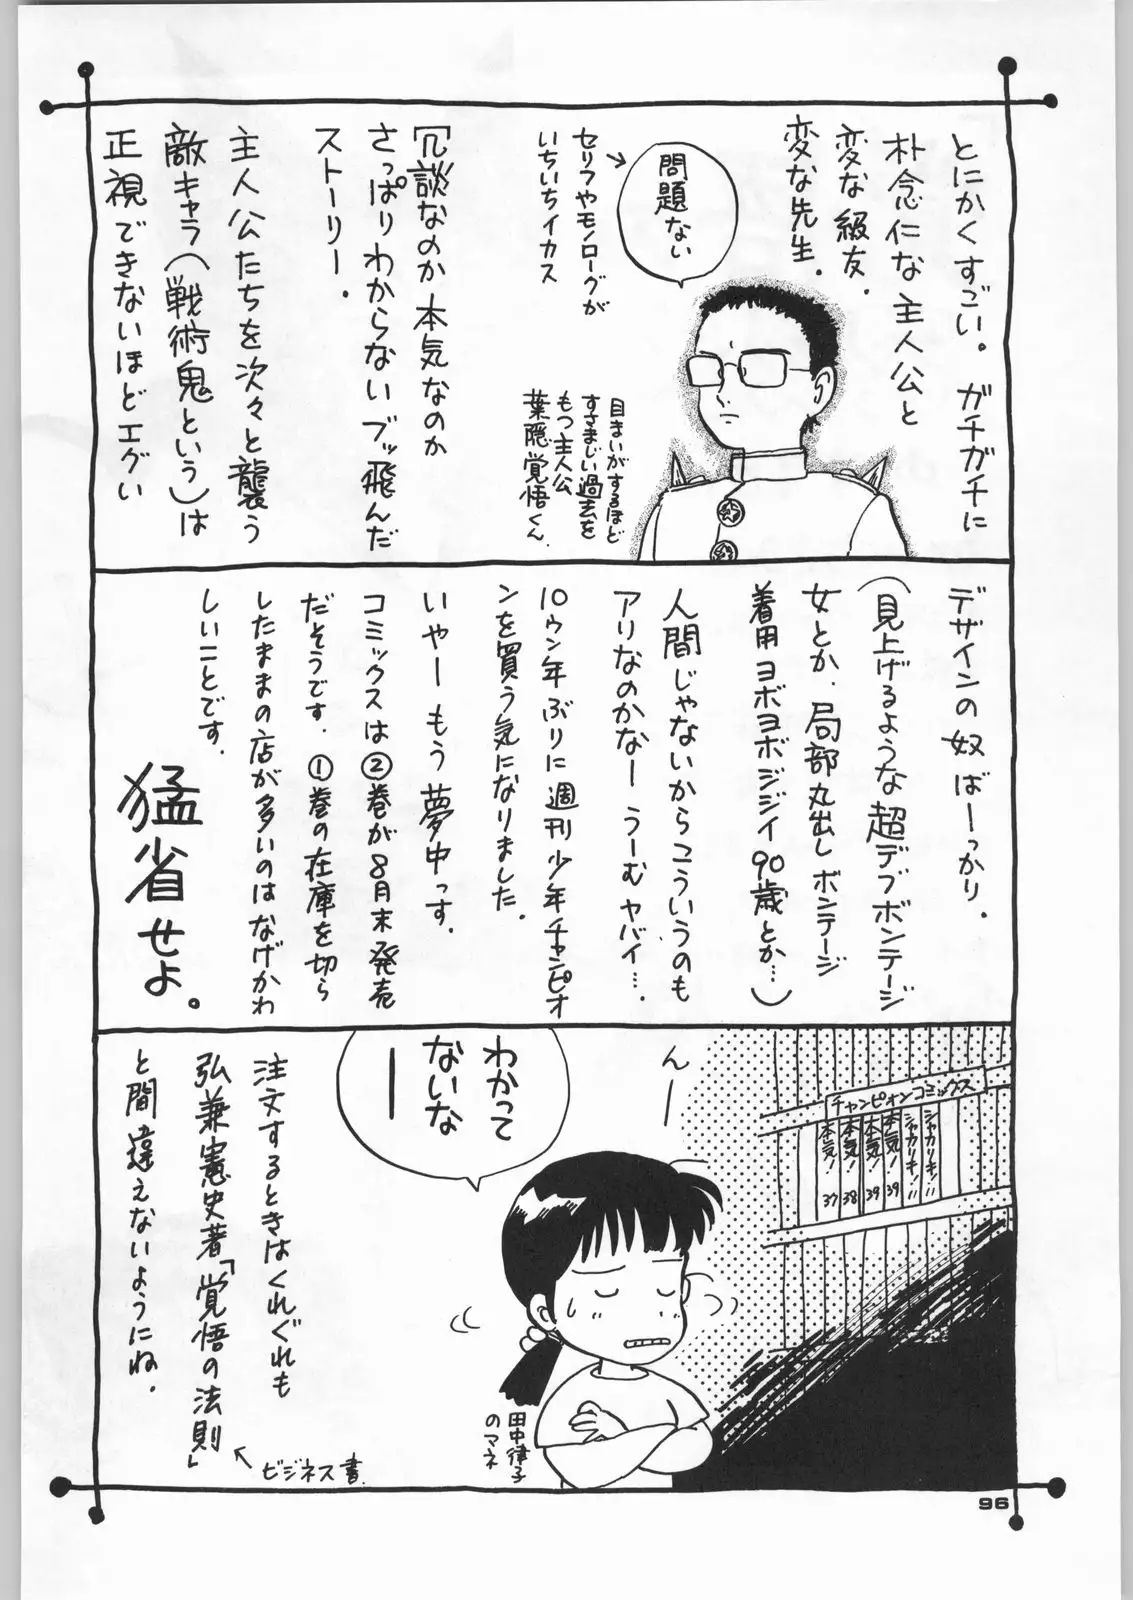 とにかくすごい。ガチガチに
朴念仁な主人公と
変な級友.
変な先生.
問題ない
セリフやモノローグが
いちいちイカス
目まいがするほど
すさまじい過去を
もつ主人公
葉隠覚悟くん.
冗談なのか本気なのか
さっぱりわからないブッ飛んだ
ストーリー.
主人公たちを次々と襲う
敵キャラ(戦術鬼という)は
正視できないほどエグい
デザインの奴ばーっかり.
(見上げるような超デブボンテージ
女とか.局部丸出しボンテージ
着用ヨボヨボジジイ90歳とか…)
人間じゃないからこういうのも
アリなのかなー うーむヤバイ….
10ウン年ぶりに週刊少年チャンピオ
ンを買う気になりました.
いやー もう夢中っす.
コミックスは②巻が8月末発売
だそうです. ①巻の在庫を切ら
したままの店が多いのはなげかわ
しいことです.
猛省せよ。
んー
チャンピオンコミックス
シャカリキ!! 
シャカリキ!!
本気! 39
本気! 39
本気! 38
本気! 37
わかって
ないな
ー
田中律子
のマネ
注文するときはくれぐれも
弘兼憲史著「覚悟の法則」
ビジネス書.
と間違えないようにね.
96